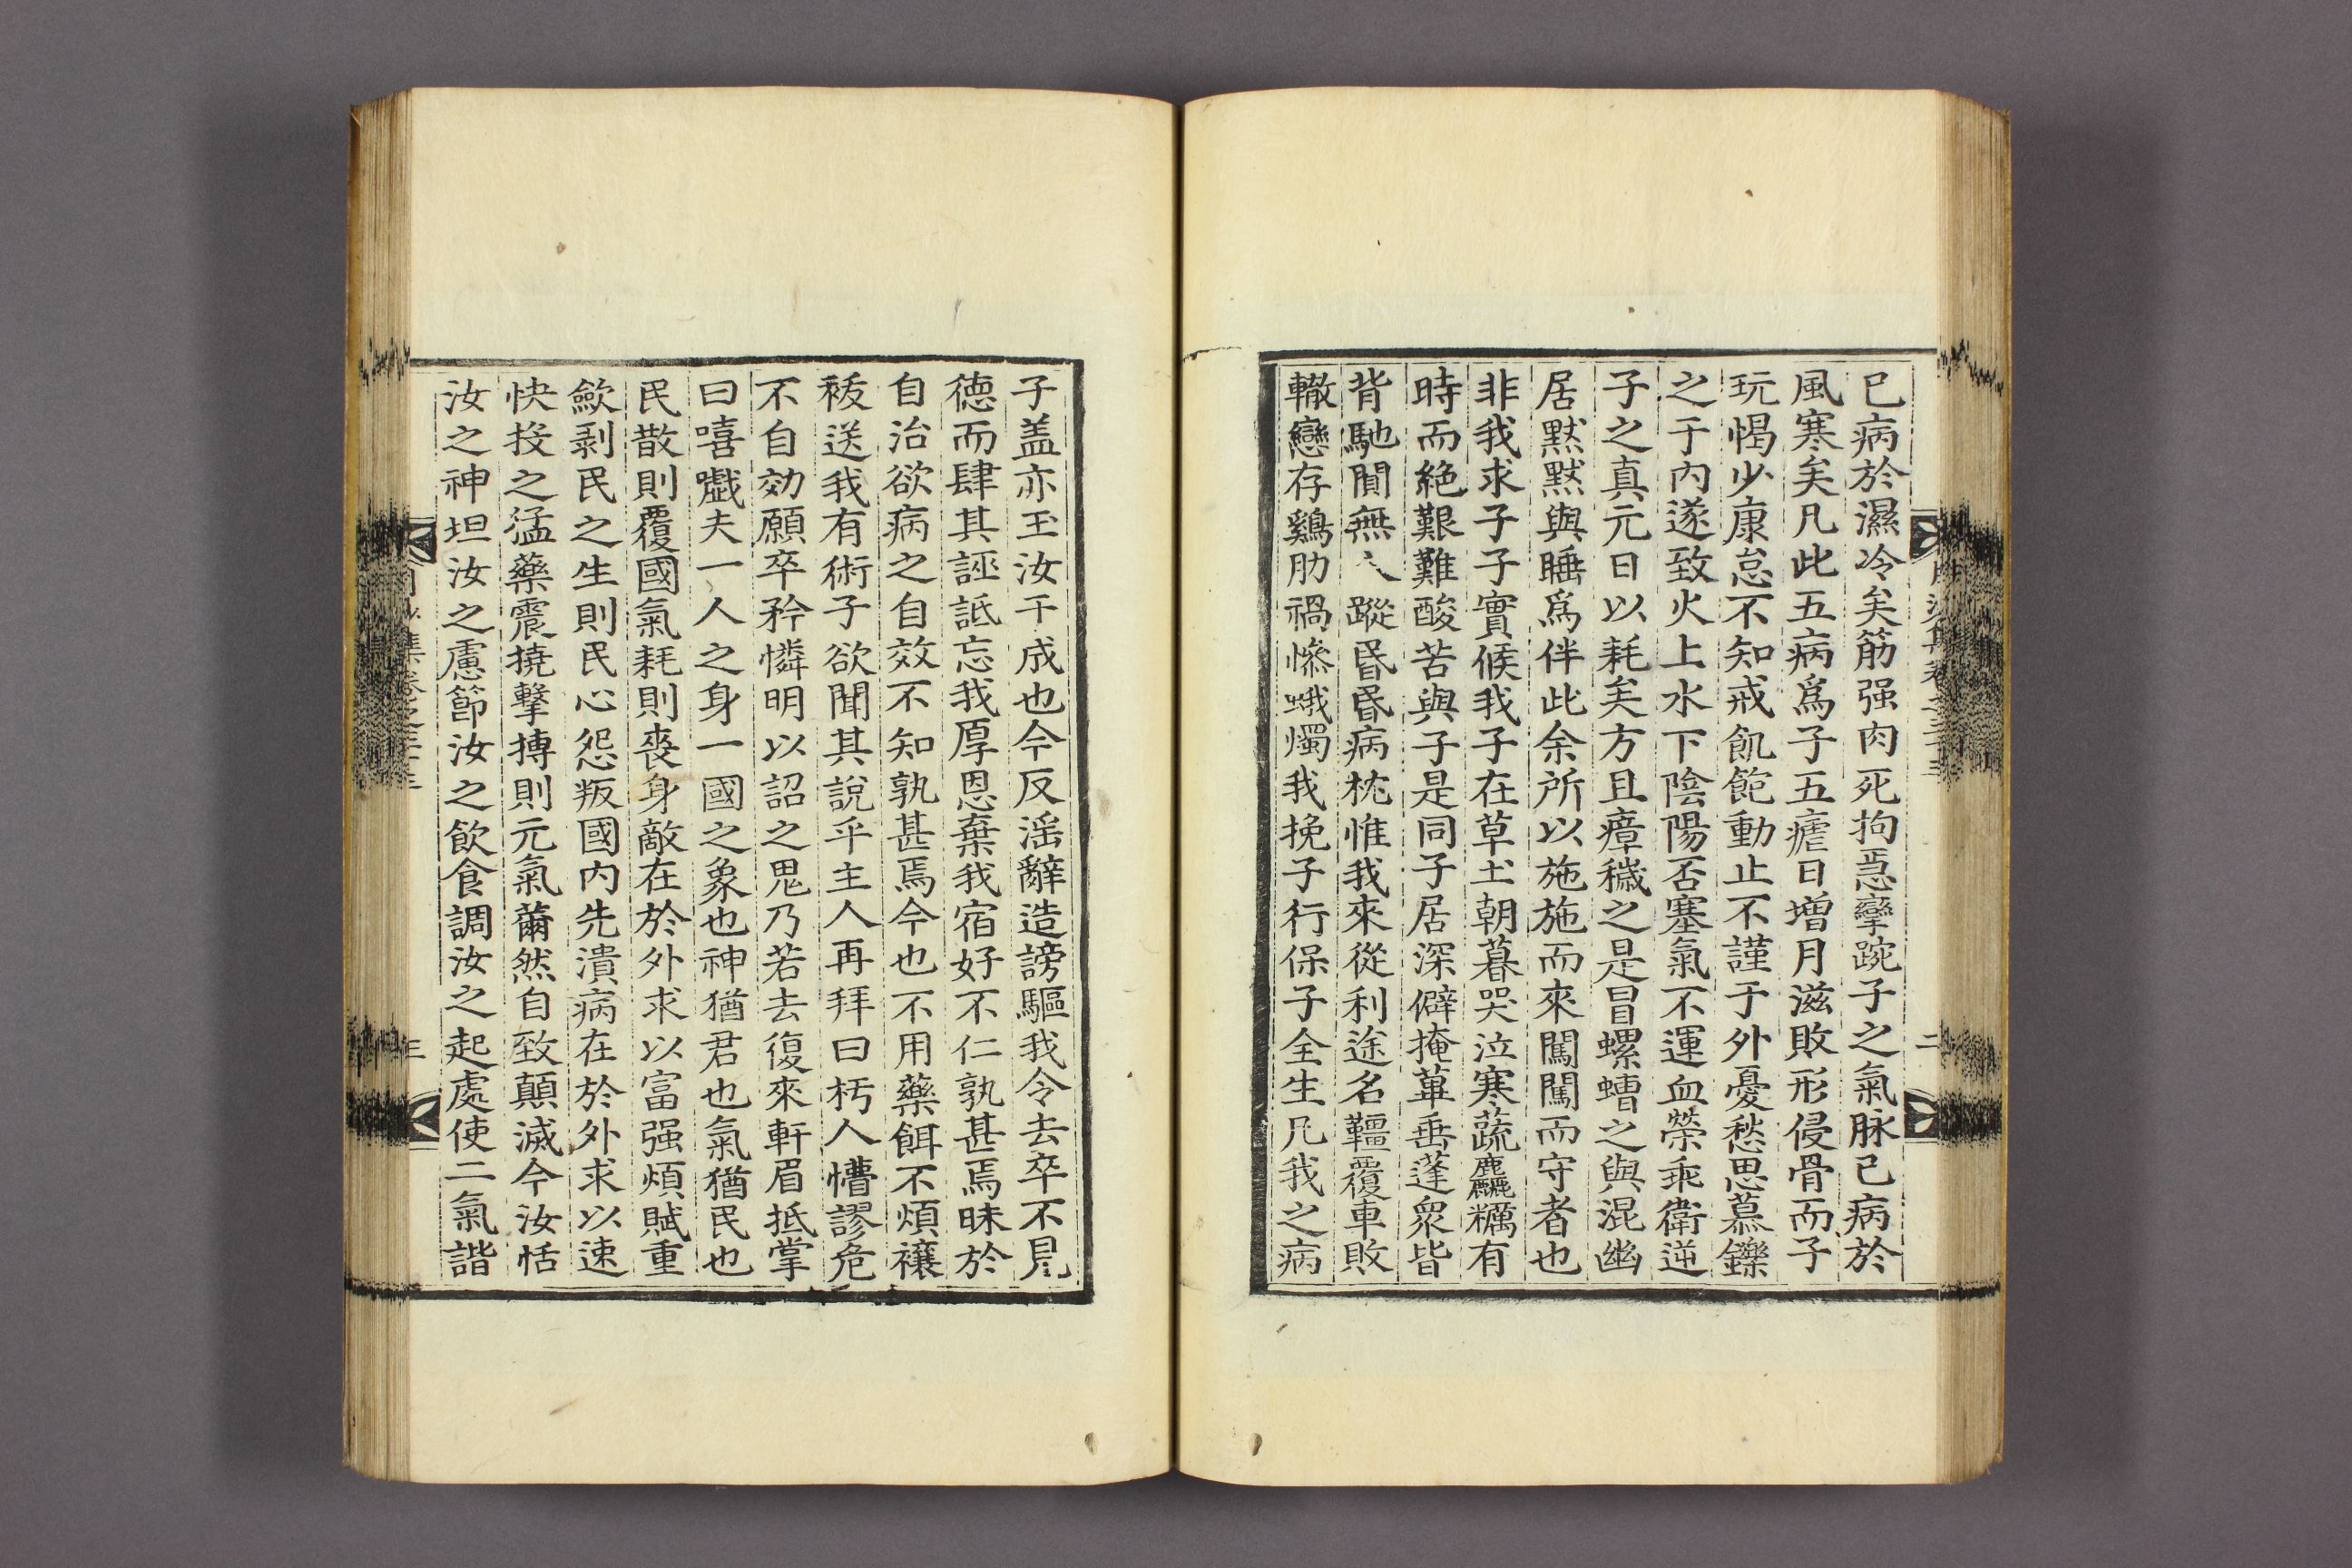 已病於濕冷矣筋强肉死拘急攣踠子之氣脉已病於
風寒矣凡此五病爲子五瘧日增月滋敗形侵骨而子
玩愒少康怠不知戒飢飽動止不謹于外憂愁思慕鑠
之于內遂致火上水下陰陽否塞氣不運血榮乖衛逆
子之真元日以耗矣方且瘴穢之是冒螺蟧之與混幽
居黙黙與睡爲伴此余所以施施而來闖闖而守者也
非我求子子實候我子在草土朝暮哭泣寒蔬麤糲有
時而絶艱難酸苦與子是同子居深僻掩蓽垂蓬衆皆
背馳閴無人蹤昏昏病枕惟我來從利途名韁覆車敗
轍戀存鷄肋禍慘蛾燭我挽子行保子全生凡我之病
子盖亦玉汝于成也今反滛辭造謗驅我令去卒不見
德而肆其誣詆忘我厚恩棄我宿好不仁孰甚焉昧於
自治欲病之自效不知孰甚焉今也不用藥餌不煩禳
祓送我有術子欲聞其說乎主人再拜曰朽人懵謬危
不自効願卒矜憐明以詔之鬼乃若去復來軒眉抵掌
曰嘻噓夫一人之身一國之象也神猶君也氣猶民也
民散則覆國氣耗則喪身敵在於外求以富强煩賦重
歛剥民之生則民心怨叛國內先潰病在於外求以速
快投之猛藥震撓擊搏則元氣薾然自致顛滅今汝恬
汝之神坦汝之慮節汝之飮食調汝之起處使二氣諧